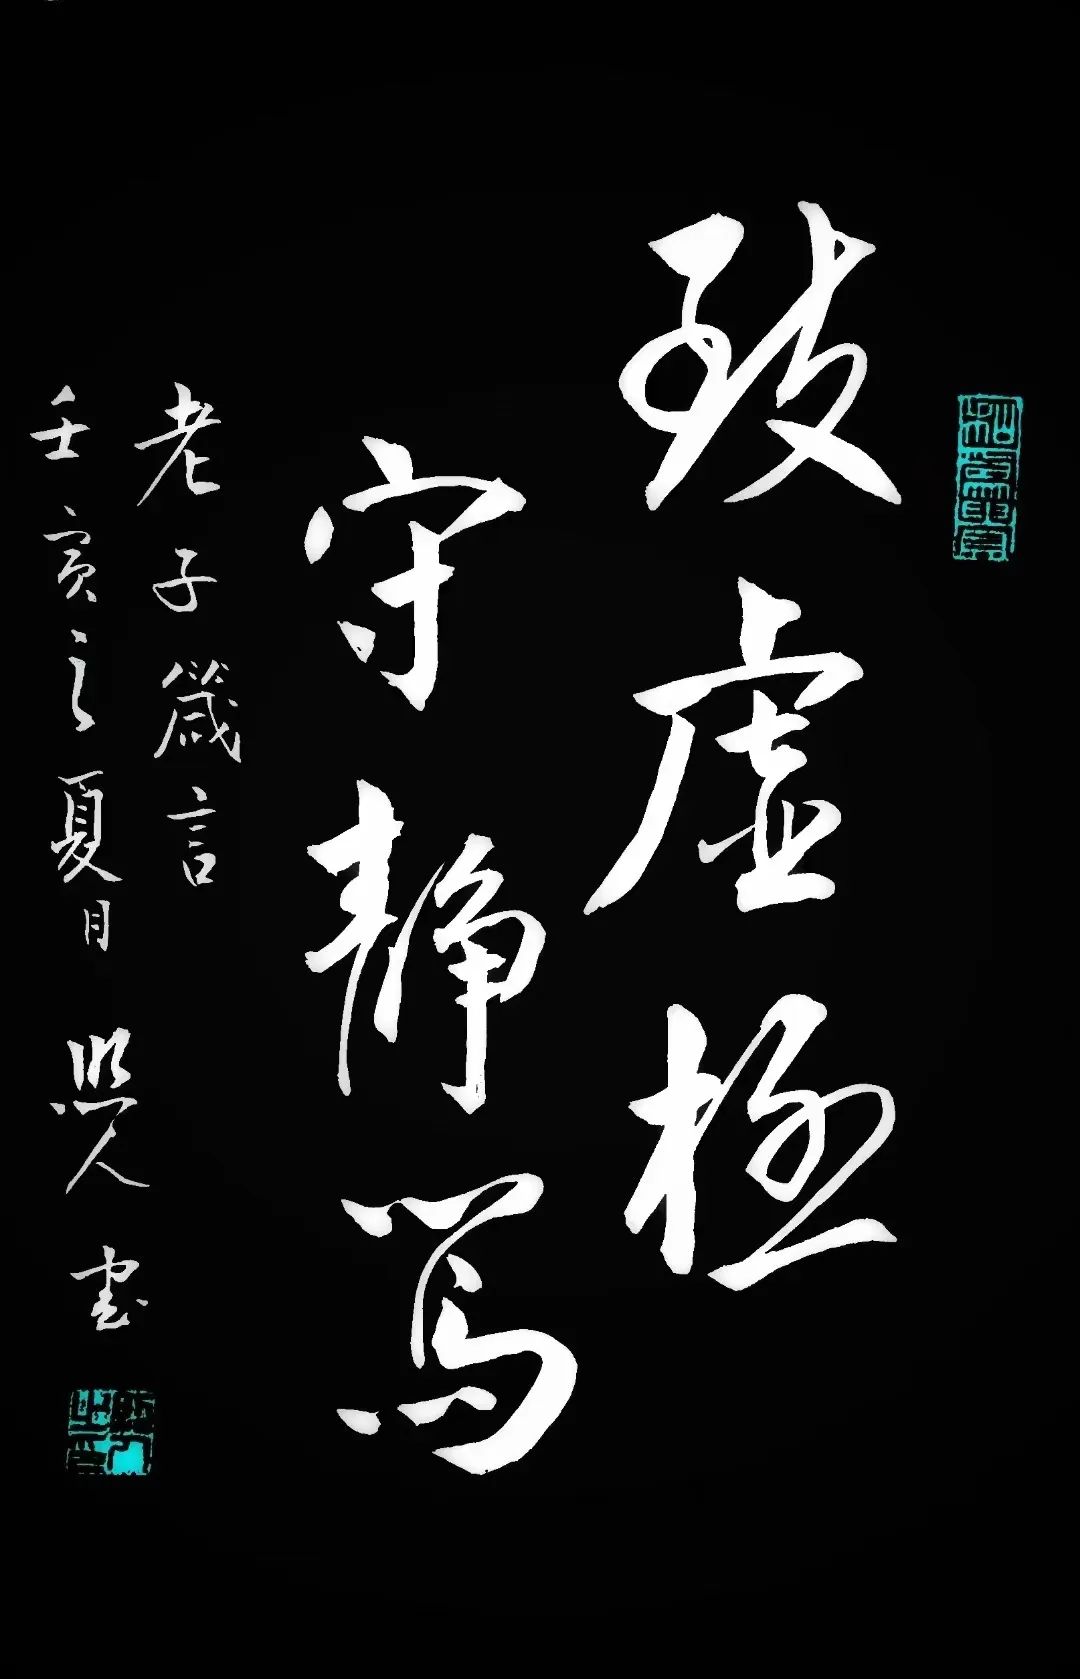 致虚極
守静篤
老子箴言
壬寅之夏月 照人书